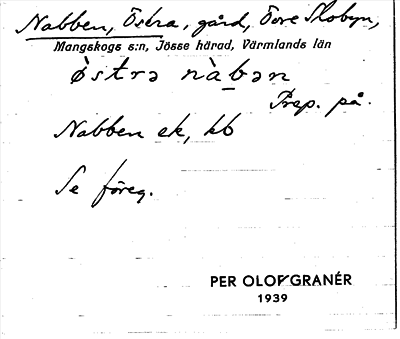 Nabben, Östra, gård, Övre Skobyn,
Mangskogs s:n, Jösse härad, Värmlands län
ö̀strə nàbən
Prep. på.
Nabben ek, kb
Se föreg.
PER OLOF GRANÉR
1939